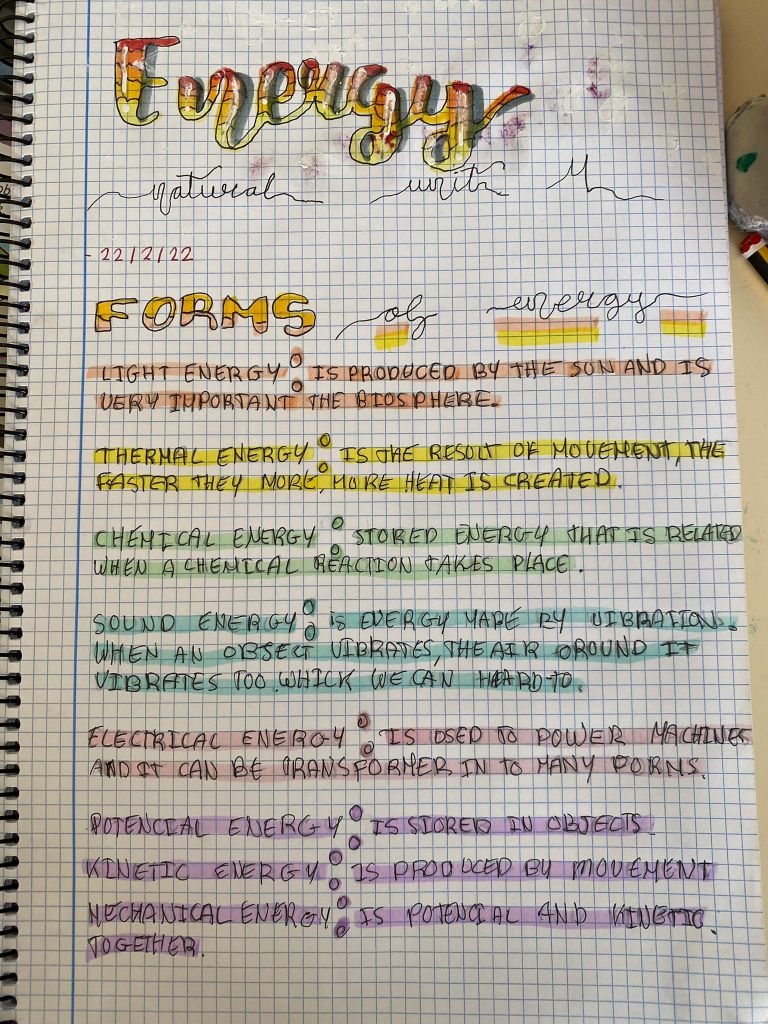 Energy
natural unit 4
- 22/2/22
FORMS of energy
LIGHT ENERGY: IS PRODUCED BY THE SUN AND IS
VERY IMPORTANT THE BIOSPHERE.
THERMAL ENERGY: IS THE RESULT OF MOVEMENT, THE
FASTER THEY MORE, MORE HEAT IS CREATED.
CHEMICAL ENERGY: STORED ENERGY THAT IS RELATED
WHEN A CHEMICAL REACTION TAKES PLACE.
SOUND ENERGY: IS ENERGY MADE BY VIBRATION.
WHEN AN OBJECT VIBRATES, THE AIR OROUND IT
VIBRATES TOO, WHICK WE CAN HARD TO.
ELECTRICAL ENERGY: IS USED TO POWER MACHINES
AND IT CAN BE TRANSFORMER IN TO MANY FORMS.
POTENCIAL ENERGY: IS STORED IN OBJECTS
KINETIC ENERGY: IS PRODUCED BY MOVEMENT
MECHANICAL ENERGY: IS POTENCIAL AND KINETIC
TOGETHER.